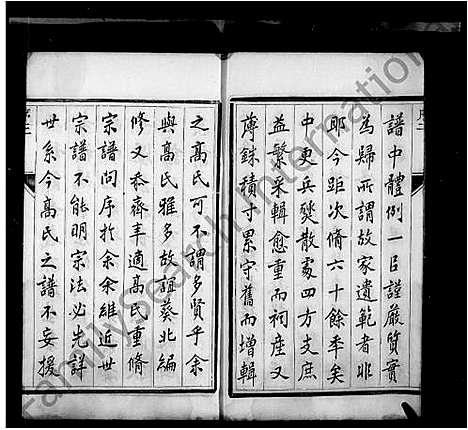 譜中體例一以謹嚴質實
為歸所謂故家遺範者非
耶今距次脩六十餘年矣
中更兵燹散處四方支庶
益繁采輯愈重而祠產又
薄銖積寸累守舊而增輯
之高氏可不謂多賢乎余
與高氏雅多故誼葵北編
修又忝齊年適高氏重脩
宗譜問序於余余維近世
宗譜不能明宗法必先詳
世系今高氏之譜不妄援
序三
FamilySearch International